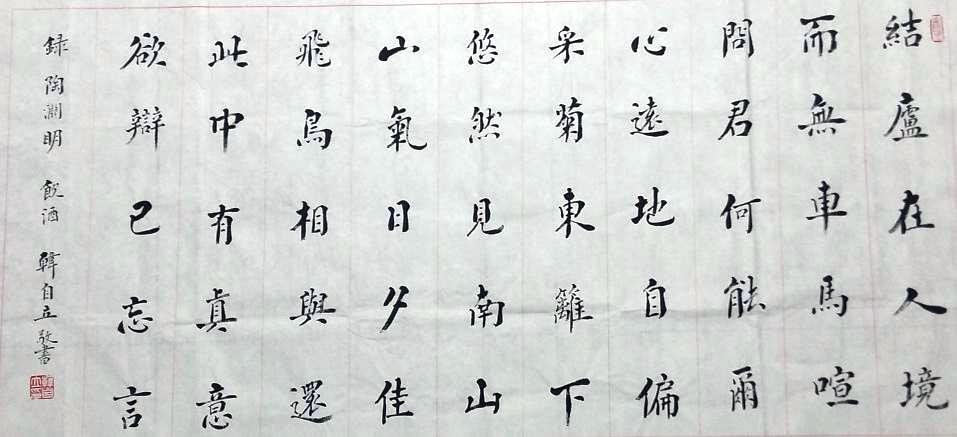 結廬在人境
而無車馬喧
問君何能爾
心遠地自偏
采菊東籬下
悠然見南山
山氣日夕佳
飛鳥相與還
此中有真意
欲辯已忘言
録陶淵明 飲酒 韓自立敬書